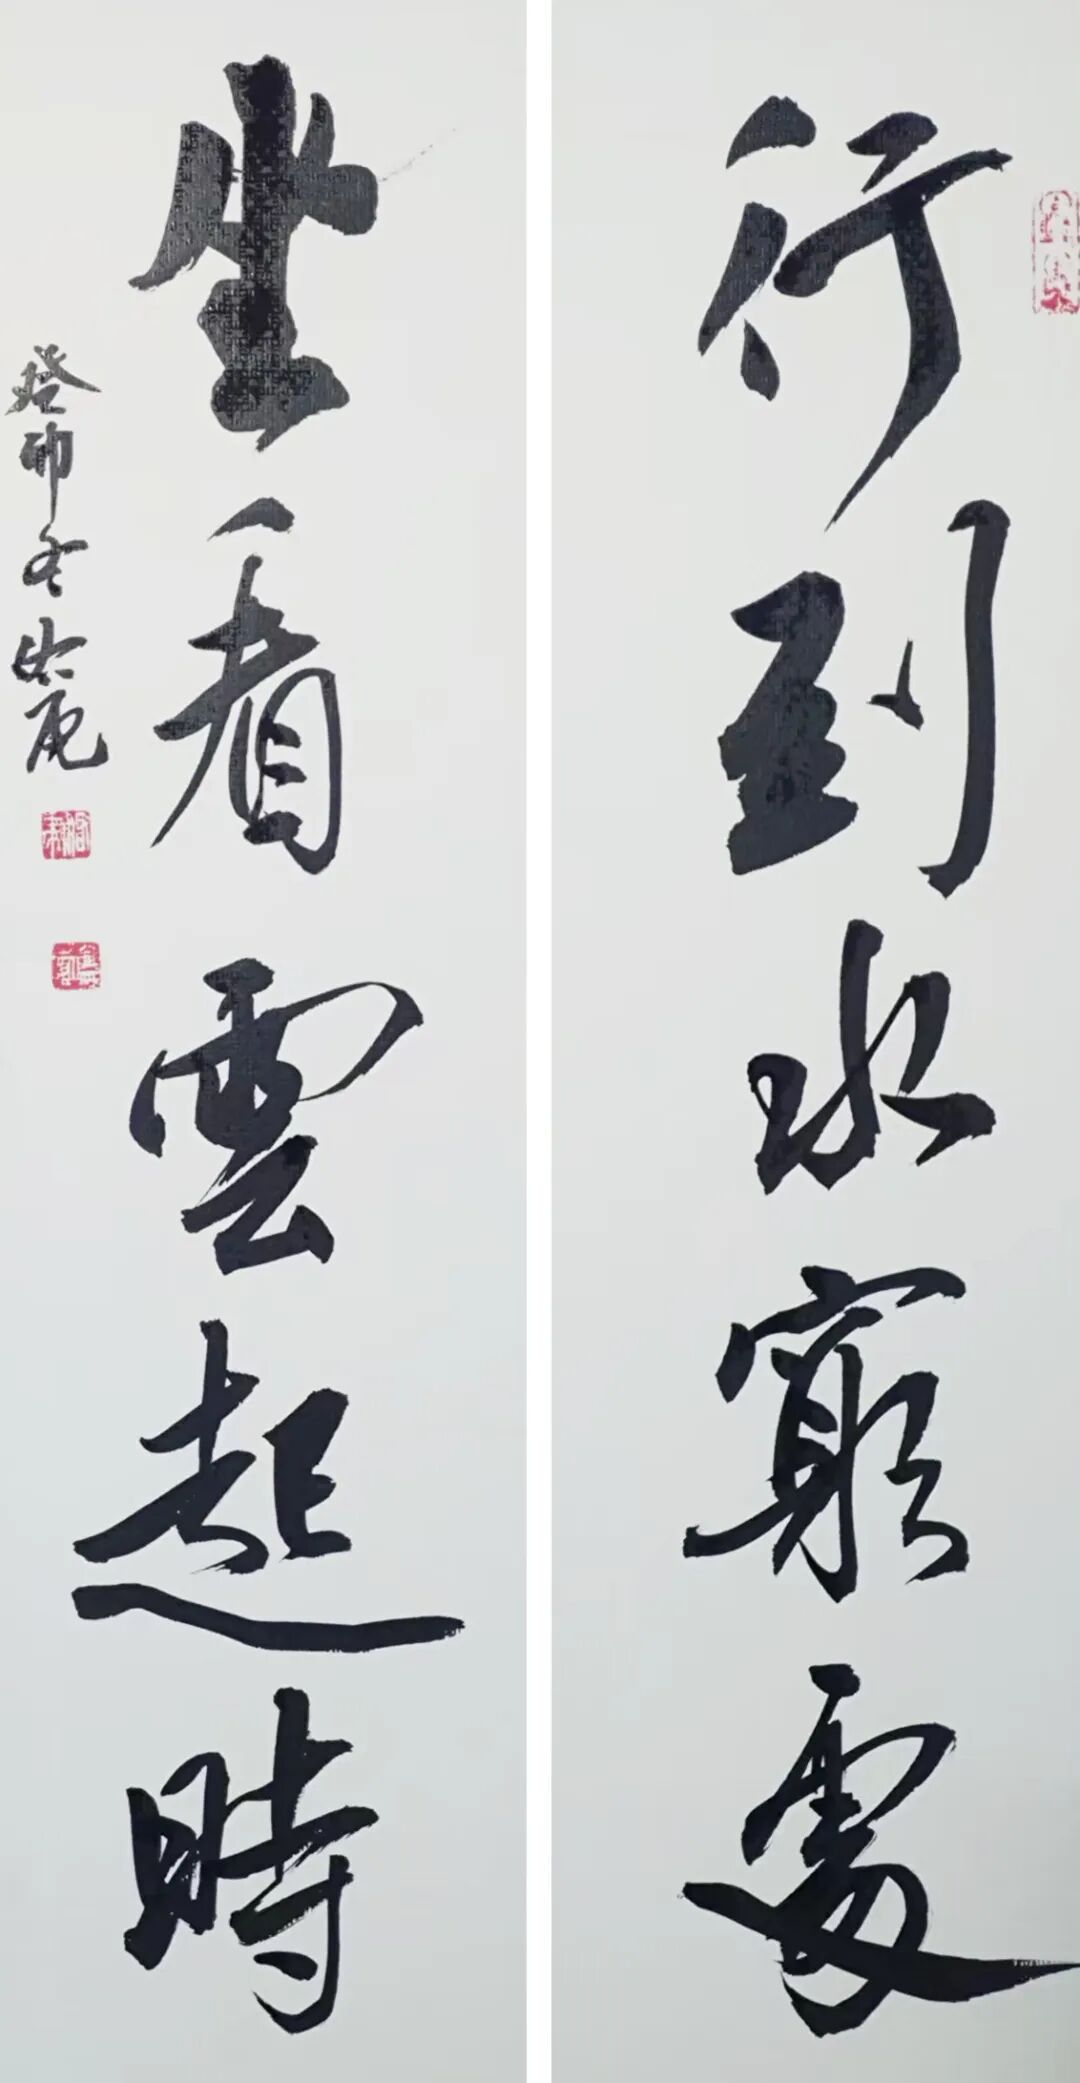 行到水窮處
坐看雲起時
癸卯冬